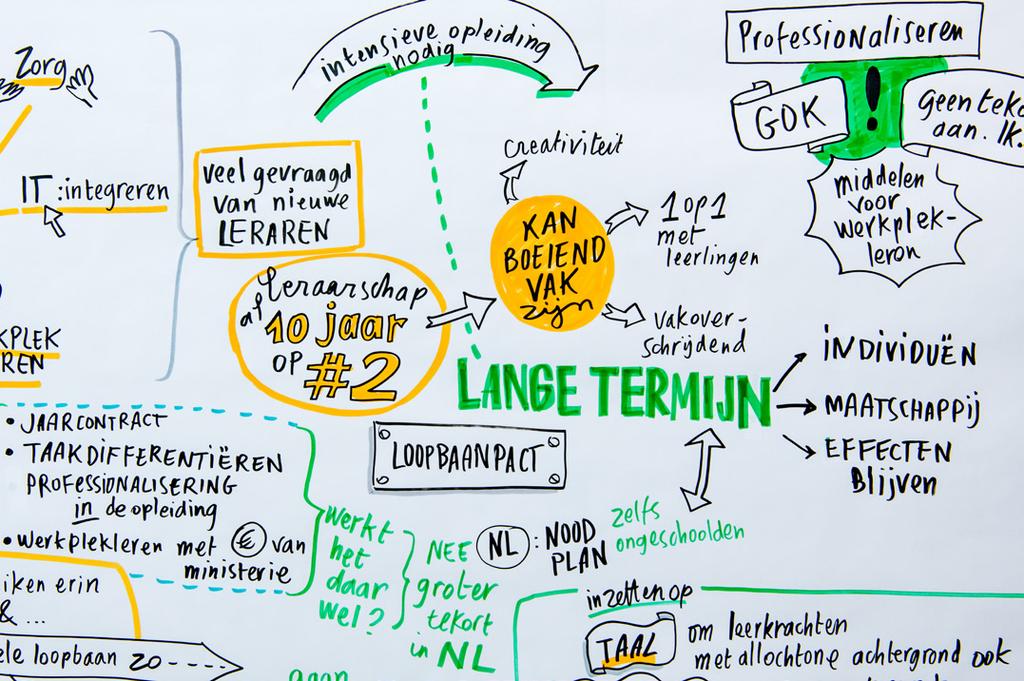 Zorg
IT: integreren
KPLEK
REN
veel gevraagd
van nieuwe
LERAREN
intensieve opleiding
nodig
leraarschap
af
10 jaar
op #2
KAN
BOEIEND
VAK
zijn
creativiteit
1 op 1
met
leerlingen
vakover-
schrijdend
Professionaliseren
GOK
!
geen teko
aan. Ik.
middelen
voor
werkplek-
leron
LANGE TERMIJN
iNDiViDUËN
MAATSCHAPPij
EFFECTEN
Blijven
LOOPBAANPACT
• JAARCONTRACT
• TAAKDIFFERENTIËREN
PROFESSIONALISERING
in de opleiding
• werkplekleren met € van
ministerie
werkt
het
daar
wel?
NEE
groter
tekort
in NL
NL: NOOD
PLAN
zelfs
ongeschoolden
iken erin
& ...
ele loopbaan zo
gaan
inzetten op
TAAL
om leerkrachten
met allochtone achtergrond ook